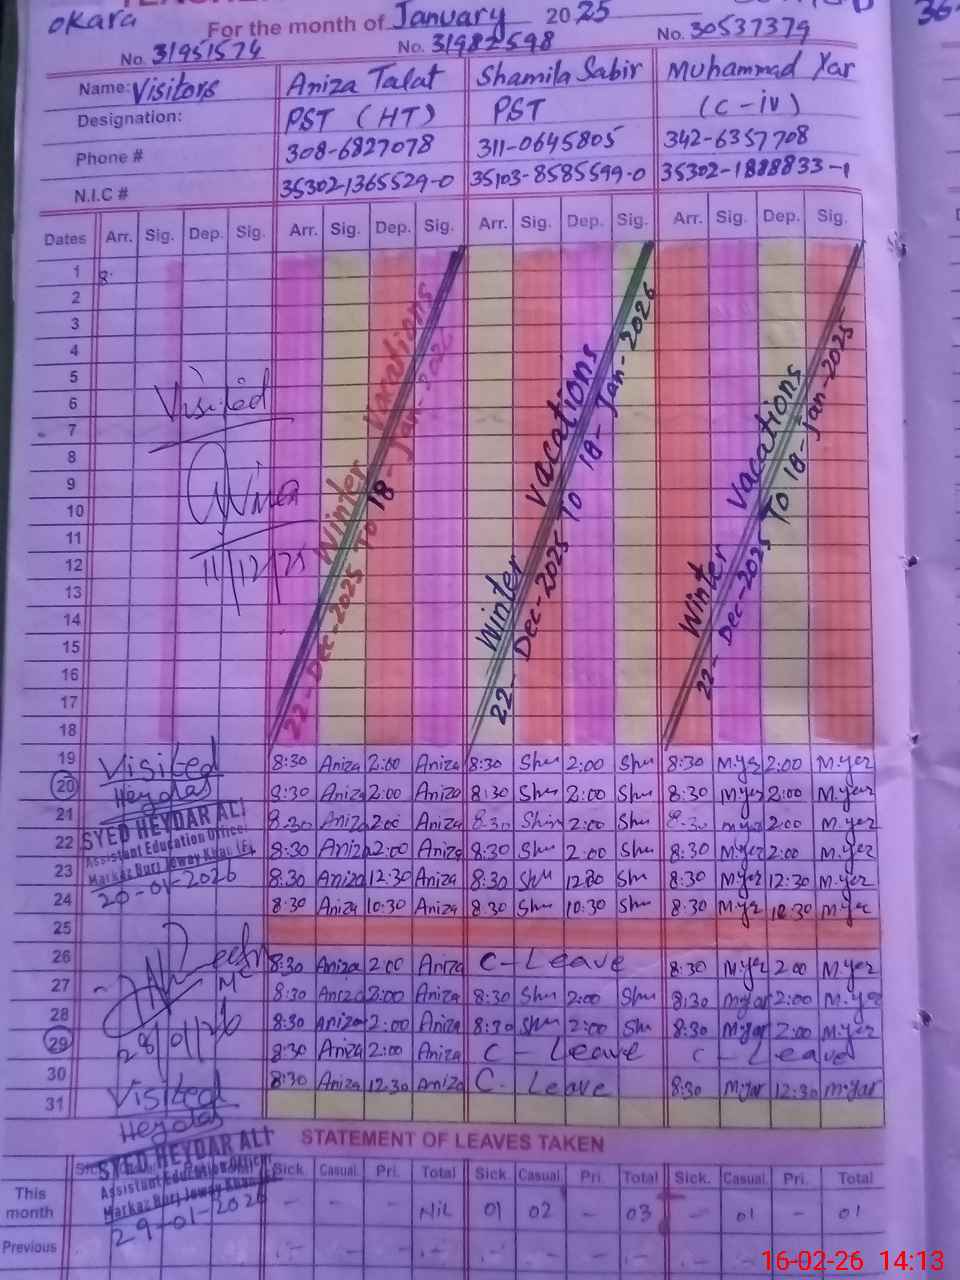 okara
For the month of January 2025
No. 31951574 No. 31982598 No. 30537379
Name: Visitors Aniza Talat Shamila Sabir Muhammad Yar
Designation: PST (HT) PST (C-iv)
Phone # 308-6827078 311-0645805 342-6357708
N.I.C # 35302-1365529-0 35103-8585599-0 35302-1888833-1
Dates Arr. Sig. Dep. Sig. Arr. Sig. Dep. Sig. Arr. Sig. Dep. Sig. Arr. Sig. Dep. Sig.
1 8
2
3
4
5
6
7
8
9
10
11
12
13
14
15
16
17
18
Visited
11/12/25
Winter Vacations
22-Dec-2025 To 18-Jan-2026
Winter Vacations
22-Dec-2025 To 18-Jan-2026
Winter Vacations
22-Dec-2025 To 18-Jan-2025
19 8:30 Aniza 2:00 Aniza 8:30 Shu 2:00 Shu 8:30 M.yer 2:00 M.yer
20 8:30 Aniza 2:00 Aniza 8:30 Shu 2:00 Shu 8:30 M.yer 2:00 M.yer
21 8:30 Aniza 2:00 Aniza 8:30 Shu 2:00 Shu 8:30 M.yer 2:00 M.yer
22 8:30 Aniza 2:00 Aniza 8:30 Shu 2:00 Shu 8:30 M.yer 2:00 M.yer
23 8:30 Aniza 12:30 Aniza 8:30 Shu 12:30 Shu 8:30 M.yer 12:30 M.yer
24 8:30 Aniza 10:30 Aniza 8:30 Shu 10:30 Shu 8:30 M.yer 10:30 M.yer
25
26 8:30 Aniza 2:00 Aniza C-Leave 8:30 M.yer 2:00 M.yer
27 8:30 Aniza 2:00 Aniza 8:30 Shu 2:00 Shu 8:30 M.yar 2:00 M.yar
28 8:30 Aniza 2:00 Aniza 8:30 Shu 2:00 Shu 8:30 M.yar 2:00 M.yer
29 8:30 Aniza 2:00 Aniza C-Leave C-Leave
30 8:30 Aniza 12:30 Aniza C-Leave 8:30 M.yar 12:30 M.yar
31
Visited
SYED HEYDAR ALI
Assistant Education Officer
20-01-2026
28/01/26
Visited
SYED HEYDAR ALI
Assistant Education Officer
29-01-2026
STATEMENT OF LEAVES TAKEN
Sick. Casual. Pri. Total Sick. Casual. Pri. Total Sick. Casual. Pri. Total
This month - - - Nil 01 02 - 03 - 01 - 01
Previous
16-02-26 14:13